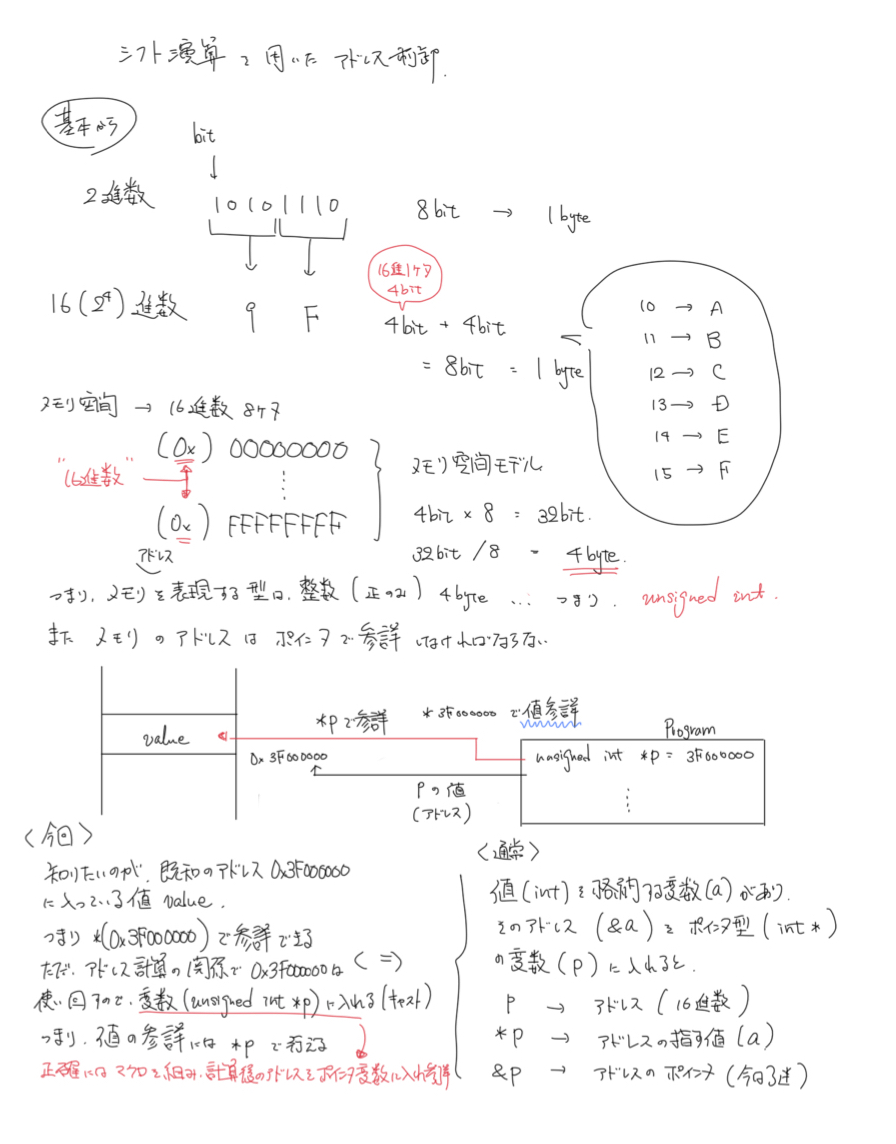 シフト演算を用いたアドレス制御.
基本から
bit
↓
2進数 10101110 8bit → 1byte
16(2⁴)進数 9 F
16進1ケタ
4bit
4bit + 4bit
= 8bit = 1byte
10 → A
11 → B
12 → C
13 → D
14 → E
15 → F
メモリ空間 → 16進数 8ケタ
(0x) 00000000
"16進数"
⋮
(0x) FFFFFFFF
アドレス
メモリ空間モデル
4bit × 8 = 32bit.
32bit /8 = 4byte.
つまり、メモリを表現する型は、整数(正のみ) 4byte … つまり、unsigned int.
また メモリ の アドレス は ポインタ で 参詳 しなければならない
value
*pで参詳 *3F000000 で値参詳
0x3F000000
Pの値
(アドレス)
Program
unsigned int *p = 3F000000
⋮
<今回>
知りたいのが、既知のアドレス 0x3F000000
に入っている値 value.
つまり *(0x3F000000)で参詳できる
ただ、アドレス計算の関係で 0x3F000000は
使い回すので、変数(unsigned int *p)に入れる(キャスト)
つまり、値の参詳には *p で行える
正確にはマクロを組み、計算後のアドレスをポインタ変数に入れ参詳
< = >
<通常>
値(int)を格納する変数(a)があり、
そのアドレス (&a) を ポインタ型 (int*)
の変数(p)に入れると、
p → アドレス (16進数)
*p → アドレスの指す値(a)
&p → アドレスの ポインタ